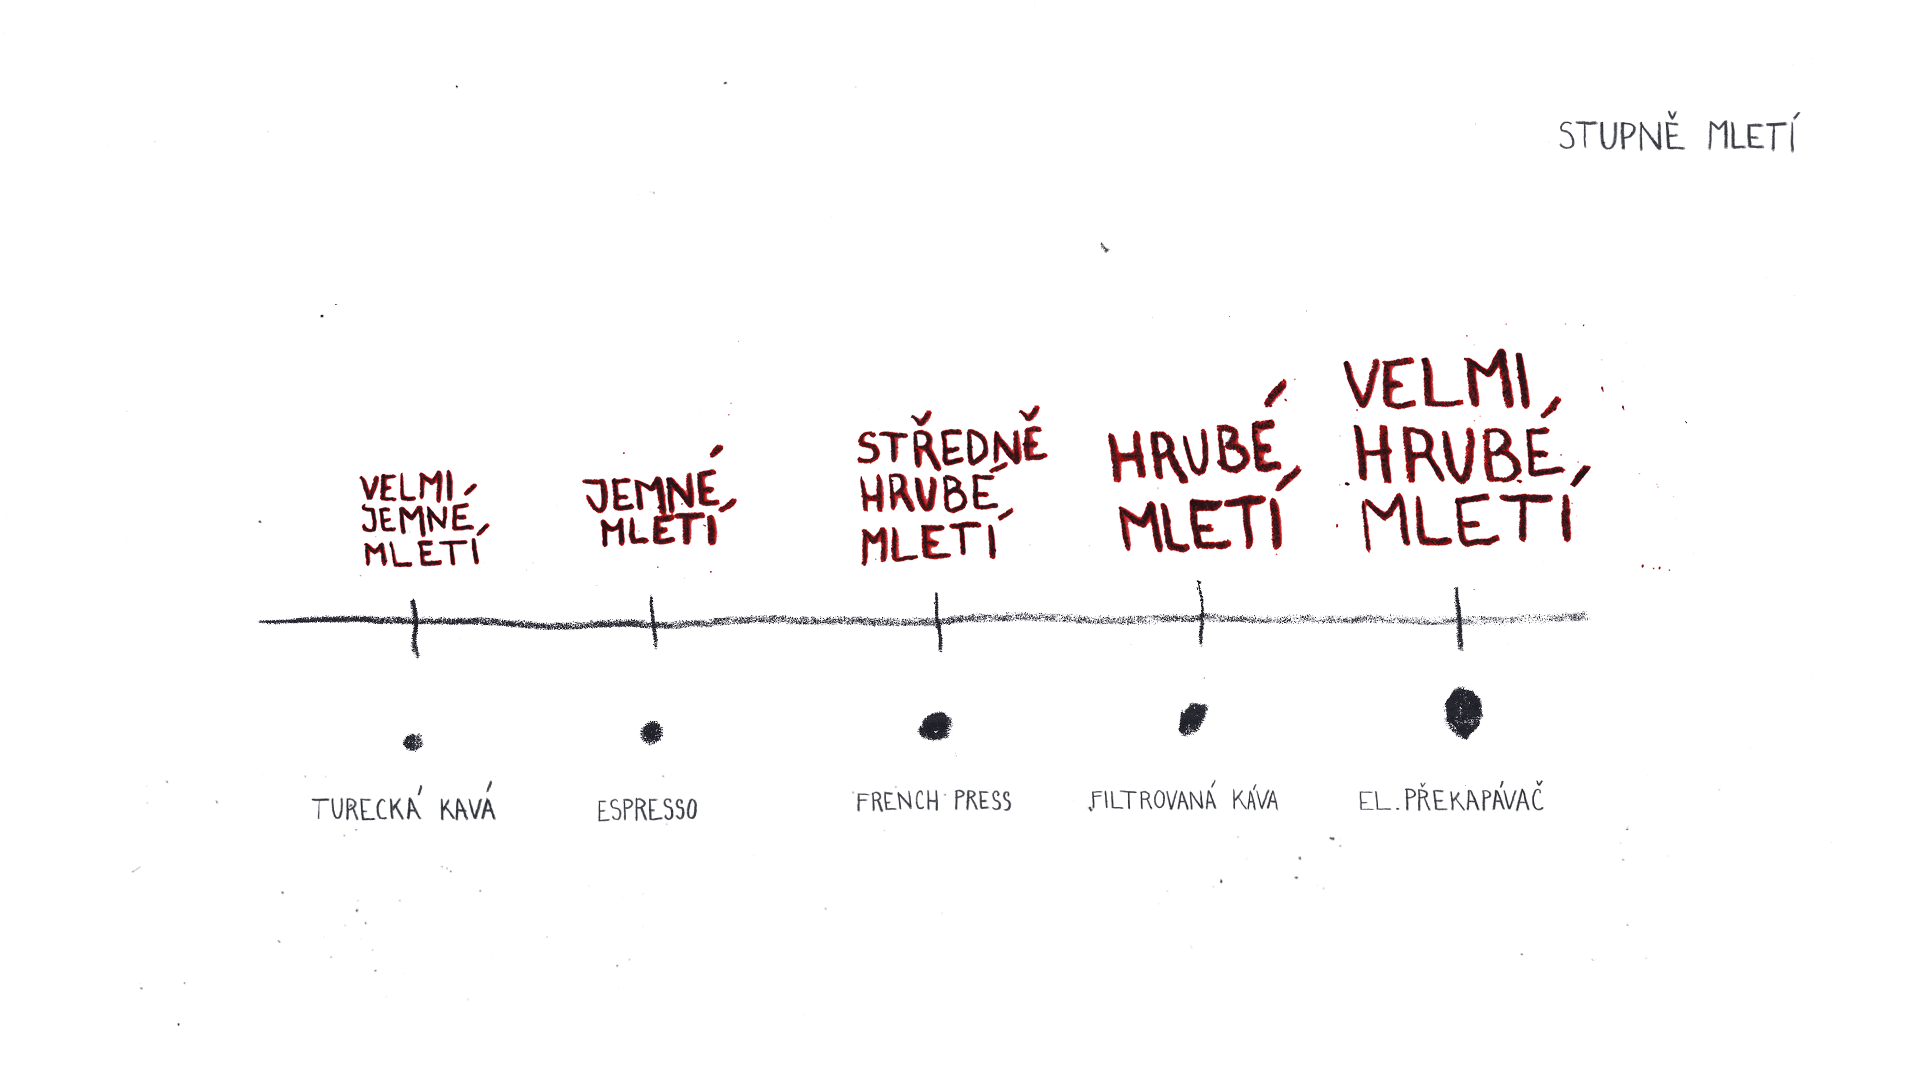 STUPNĚ MLETÍ
VELMI
JEMNÉ
MLETÍ
JEMNÉ
MLETÍ
STŘEDNĚ
HRUBÉ
MLETÍ
HRUBÉ
MLETÍ
VELMI
HRUBÉ
MLETÍ
TURECKÁ KAVÁ
ESPRESSO
FRENCH PRESS
FILTROVANÁ KÁVA
EL. PŘEKAPÁVAČ